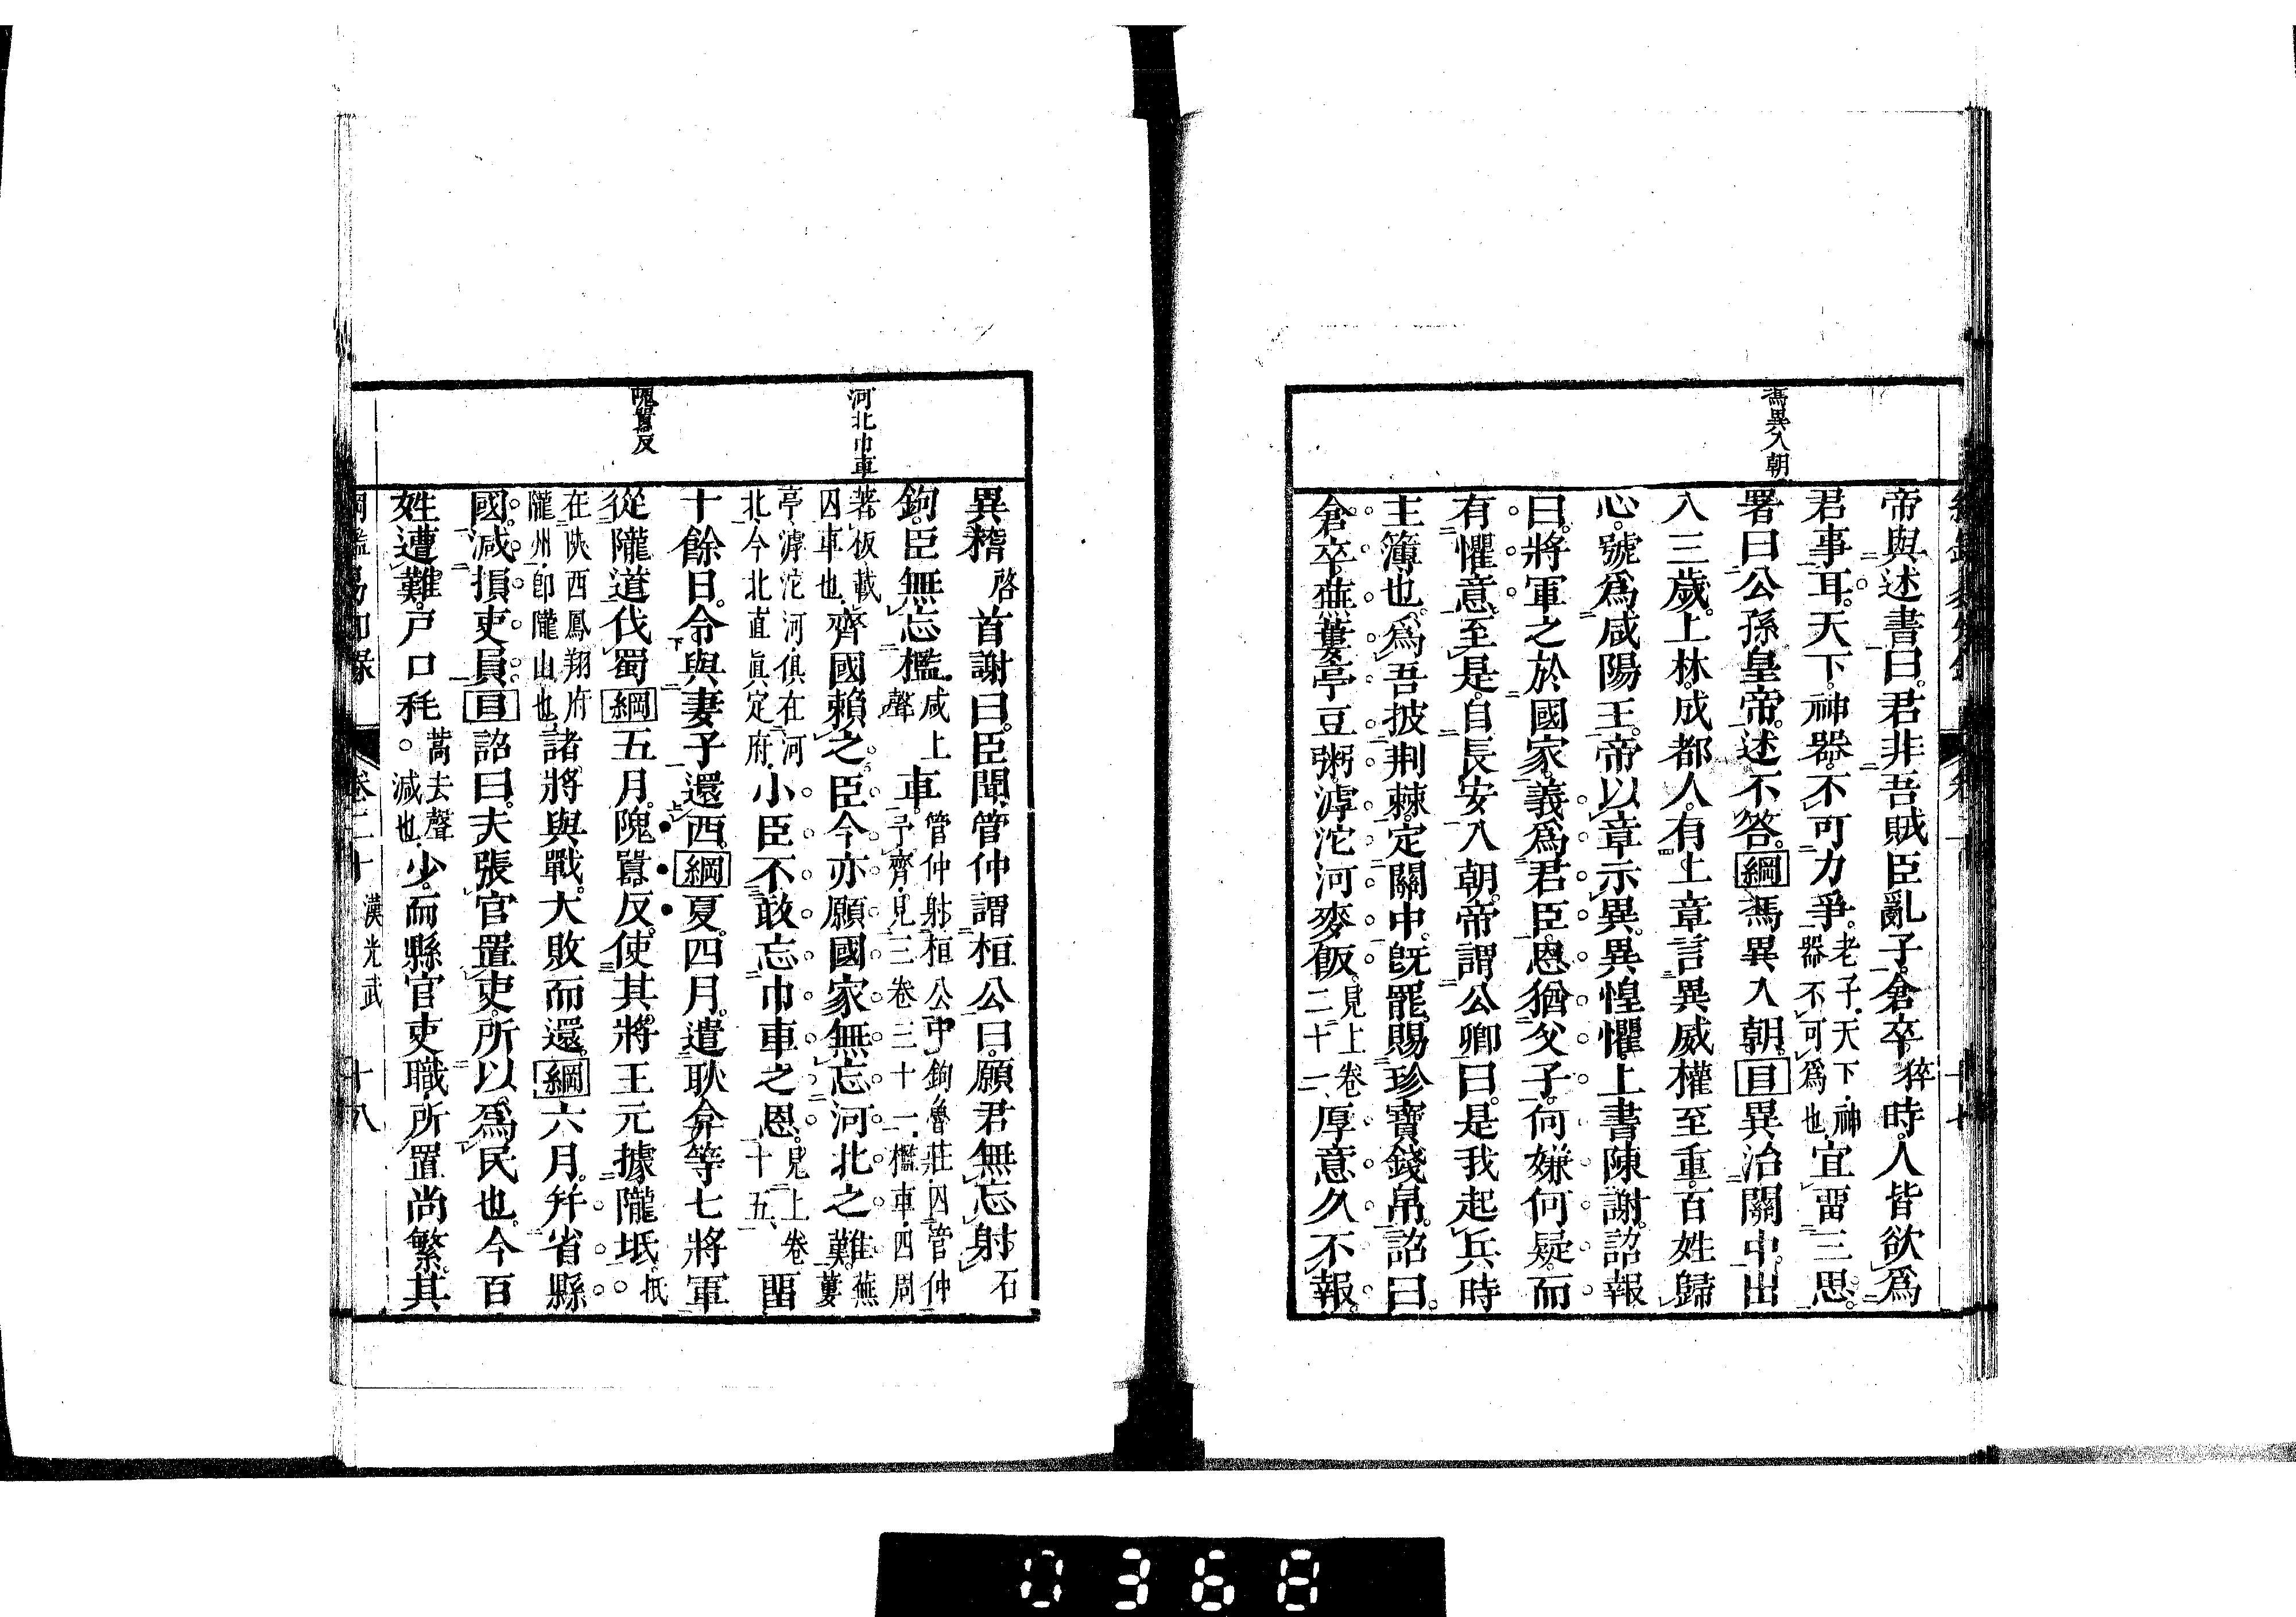 馮異入朝
帝與述書曰。君非吾賊臣亂子。倉卒。猝時。人皆欲爲
君事耳。天下。神器。不可力爭。老子。天下。神器不可爲也。宜畱三思。
署曰公孫皇帝。述不答。綱馮異入朝。目異治關中。出
入三歲。上林。成都人。有上章言。異威權至重。百姓歸
心。號爲咸陽王。帝以章示異。異惶懼。上書陳謝。詔報
曰。將軍之於國家。義爲君臣。恩猶父子。何嫌何疑。而
有懼意。至是。自長安入朝。帝謂公卿曰。是我起兵時
主簿也。爲吾披荆棘。定關中。旣罷。賜珍寶錢帛。詔曰。
倉卒。蕪蔞亭豆粥。滹沱河麥飯。見上卷二十一、厚意久不報。
河北巾車
隗囂反
異稽啓首謝曰。臣聞。管仲謂桓公曰。願君無忘射石
鉤。臣無忘檻。咸上聲車。管仲射桓公中鉤。魯莊囚管仲予齊。見三卷三十一。檻車。四周
著板。載囚車也。齊國賴之。臣今亦願國家無忘河北之難。蕪蔞
亭。滹沱河。俱在河北。今北直眞定府。小臣不敢忘巾車之恩。見上卷二十五、畱
十餘日。令與妻子還西。綱夏。四月。遣耿弇等七將軍
從隴道伐蜀綱五月。隗囂反。使其將王元據隴坻。抵
在陝西鳳翔府隴州。卽隴山也。諸將與戰。大敗而還。綱六月。幷省縣
國。減損吏員。目詔曰。夫張官置吏。所以爲民也。今百
姓遭難。戸口秏。蒿去聲。減也。少。而縣官吏職。所置尚繁。其
卷二十 漢光武 十八
0368